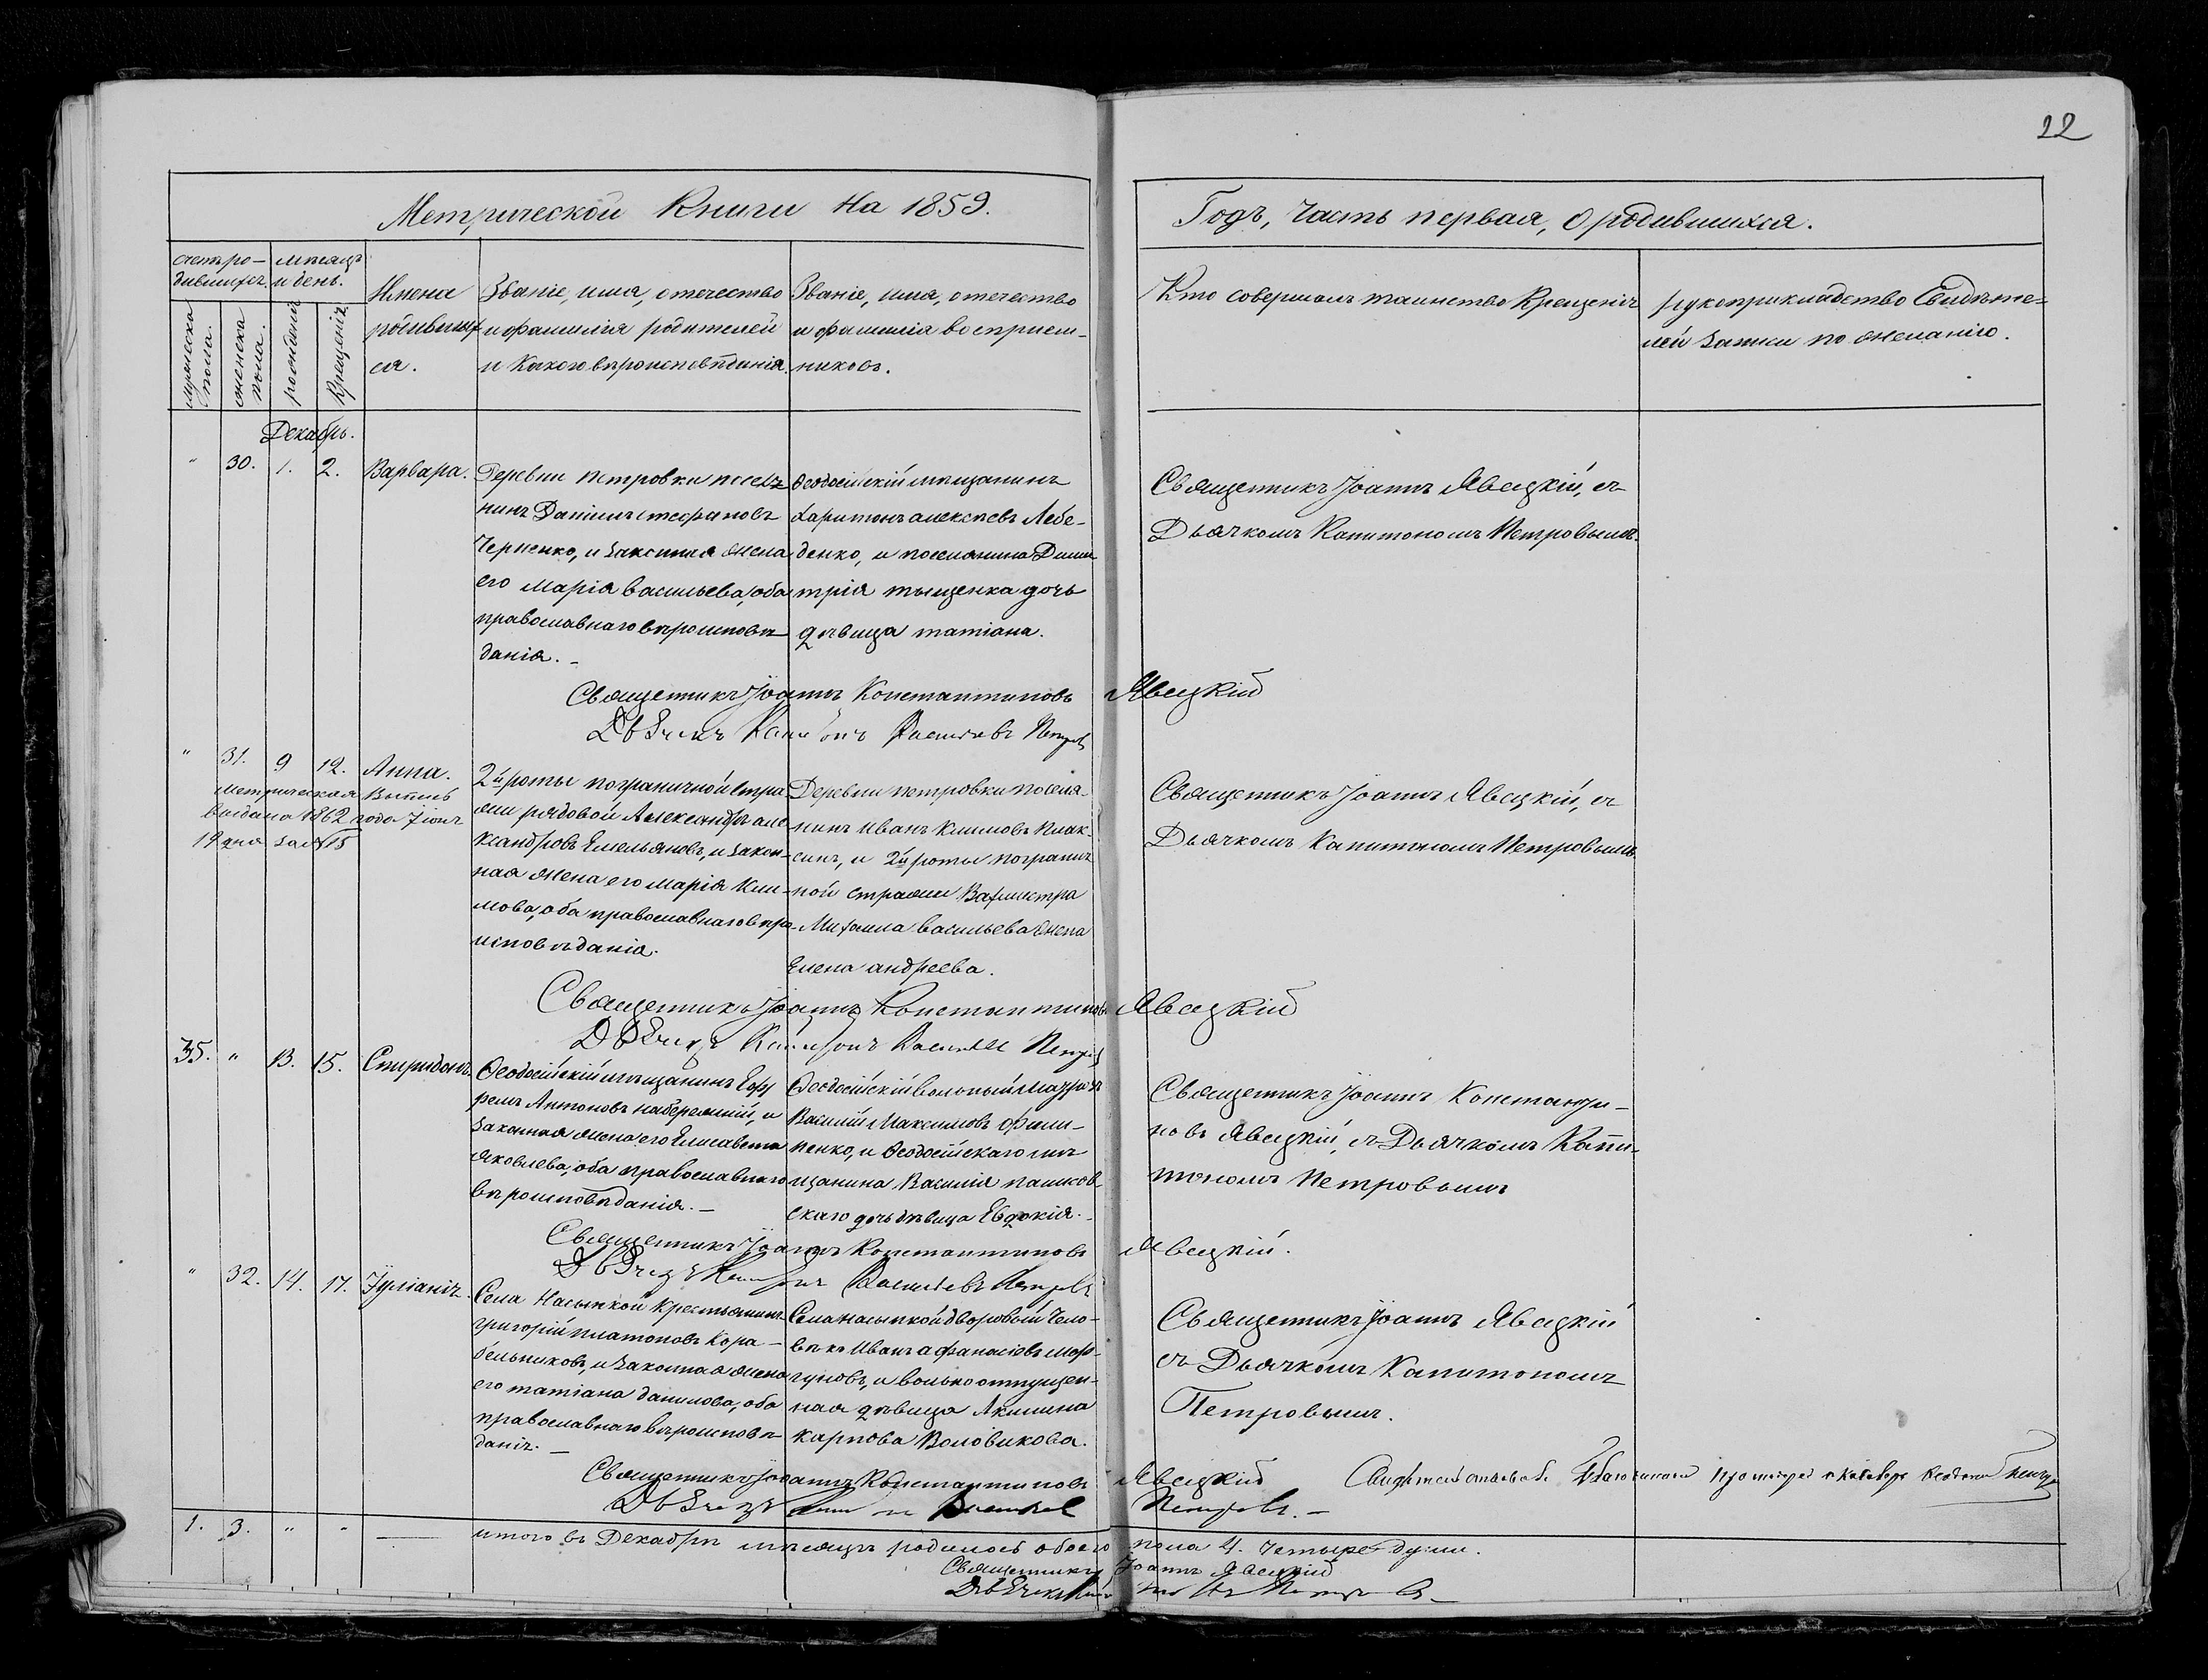 22
Метрической Книги На 1859.
Годъ, Часть первая, О родившихся.
счетъ ро-
дившихъ.
мѣсяцъ
и день.
мужеска пола.
женска пола.
рожденія
Крещенія.
Имена
родившихъ
ся.
Званіе, имя, отечество
и фамилія родителей
и Какого вѣроисповѣданія.
Званіе, имя, отечество
и фамилія восприем-
никовъ.
Кто совершалъ таинство Крещенія
рукоприкладство Свидѣте-
лей Записи по желанію.
Декабрь.
" 30. 1. 2. Варвара.
Деревни Петровки поселя
нинъ Даніилъ Стефановъ
Черненко, и законная жена
его Марія васильева, оба
православнаго вѣроисповѣ
данія.
Ѳеодосійскій мѣщанинъ
Харитонъ алексѣевъ Лебе-
денко, и поселянина Дими
трія тыщенка дочь
дѣвица татіана.
Священникъ Іоаннъ Явецкій, съ
Дьячкомъ Капитономъ Петровымъ.
Священникъ Іоаннъ Константиновъ Явецкій
Дьячекъ Капитонъ Васильевъ Петровъ
" 31. 9 12. Анна.
Метрическая Выпись
выдана 1862 года Іюня
19 дня за №15
2й роты пограничной стра
жи рядовой Александръ але
ксандровъ Емельяновъ, и закон-
ная жена его Марія Кли-
мова, оба православнаго вѣро
исповѣданія.
Деревни петровки поселя-
нинъ Иванъ Климовъ Плак-
синъ, и 2й роты погранич
ной стражи Вахмистра
Михаила васильева жена
Елена андреева.
Священникъ Іоаннъ Явецкій, съ
Дьячкомъ Капитономъ Петровымъ
Священникъ Іоаннъ Константиновъ Явецкій
Дьячекъ Капитонъ Васильевъ Петровъ
35. " 13. 15. Спиридонъ.
Ѳеодосійскій мѣщанинъ Еф
ремъ Антоновъ набережній, и
законная жена его Елисавета
Яковлева, оба православнаго
вѣроисповѣданія.
Ѳеодосійскій вольный матрозъ
Василій Максимовъ Фили-
пенко, и Ѳеодосійскаго мѣ
щанина Василія пашков-
скаго дочь дѣвица Евдокія.
Священникъ Іоаннъ Константи-
новъ Явецкій, съ Дьячкомъ Капи-
тономъ Петровымъ
Священникъ Іоаннъ Константиновъ Явецкій.
Дьячекъ Капитонъ Васильевъ Петровъ
" 32. 14. 17. Іуліанія.
Села Насыпкой Крестьянинъ
григорій платоновъ Кора-
бельниковъ, и законная жена
его татіана данилова, оба
православнаго вѣроисповѣ
данія.
Села насыпкой дворовый Чело-
вѣкъ Иванъ афанасіевъ Мор-
гуновъ, и вольноотпущен-
ная дѣвица Акилина
карпова Воловикова.
Священникъ Іоаннъ Явецкій
съ Дьячкомъ Капитономъ
Петровымъ.
Священникъ Іоаннъ Константиновъ Явецкій
Дьячекъ Капитонъ Васильевъ Петровъ.
Свидѣтельствовалъ
1. 3. " "
итого въ Декабрѣ мѣсяцѣ родилось обоего пола 4. Четыре души.
Священникъ Іоаннъ Явецкій
Дьячекъ Капитонъ Петровъ